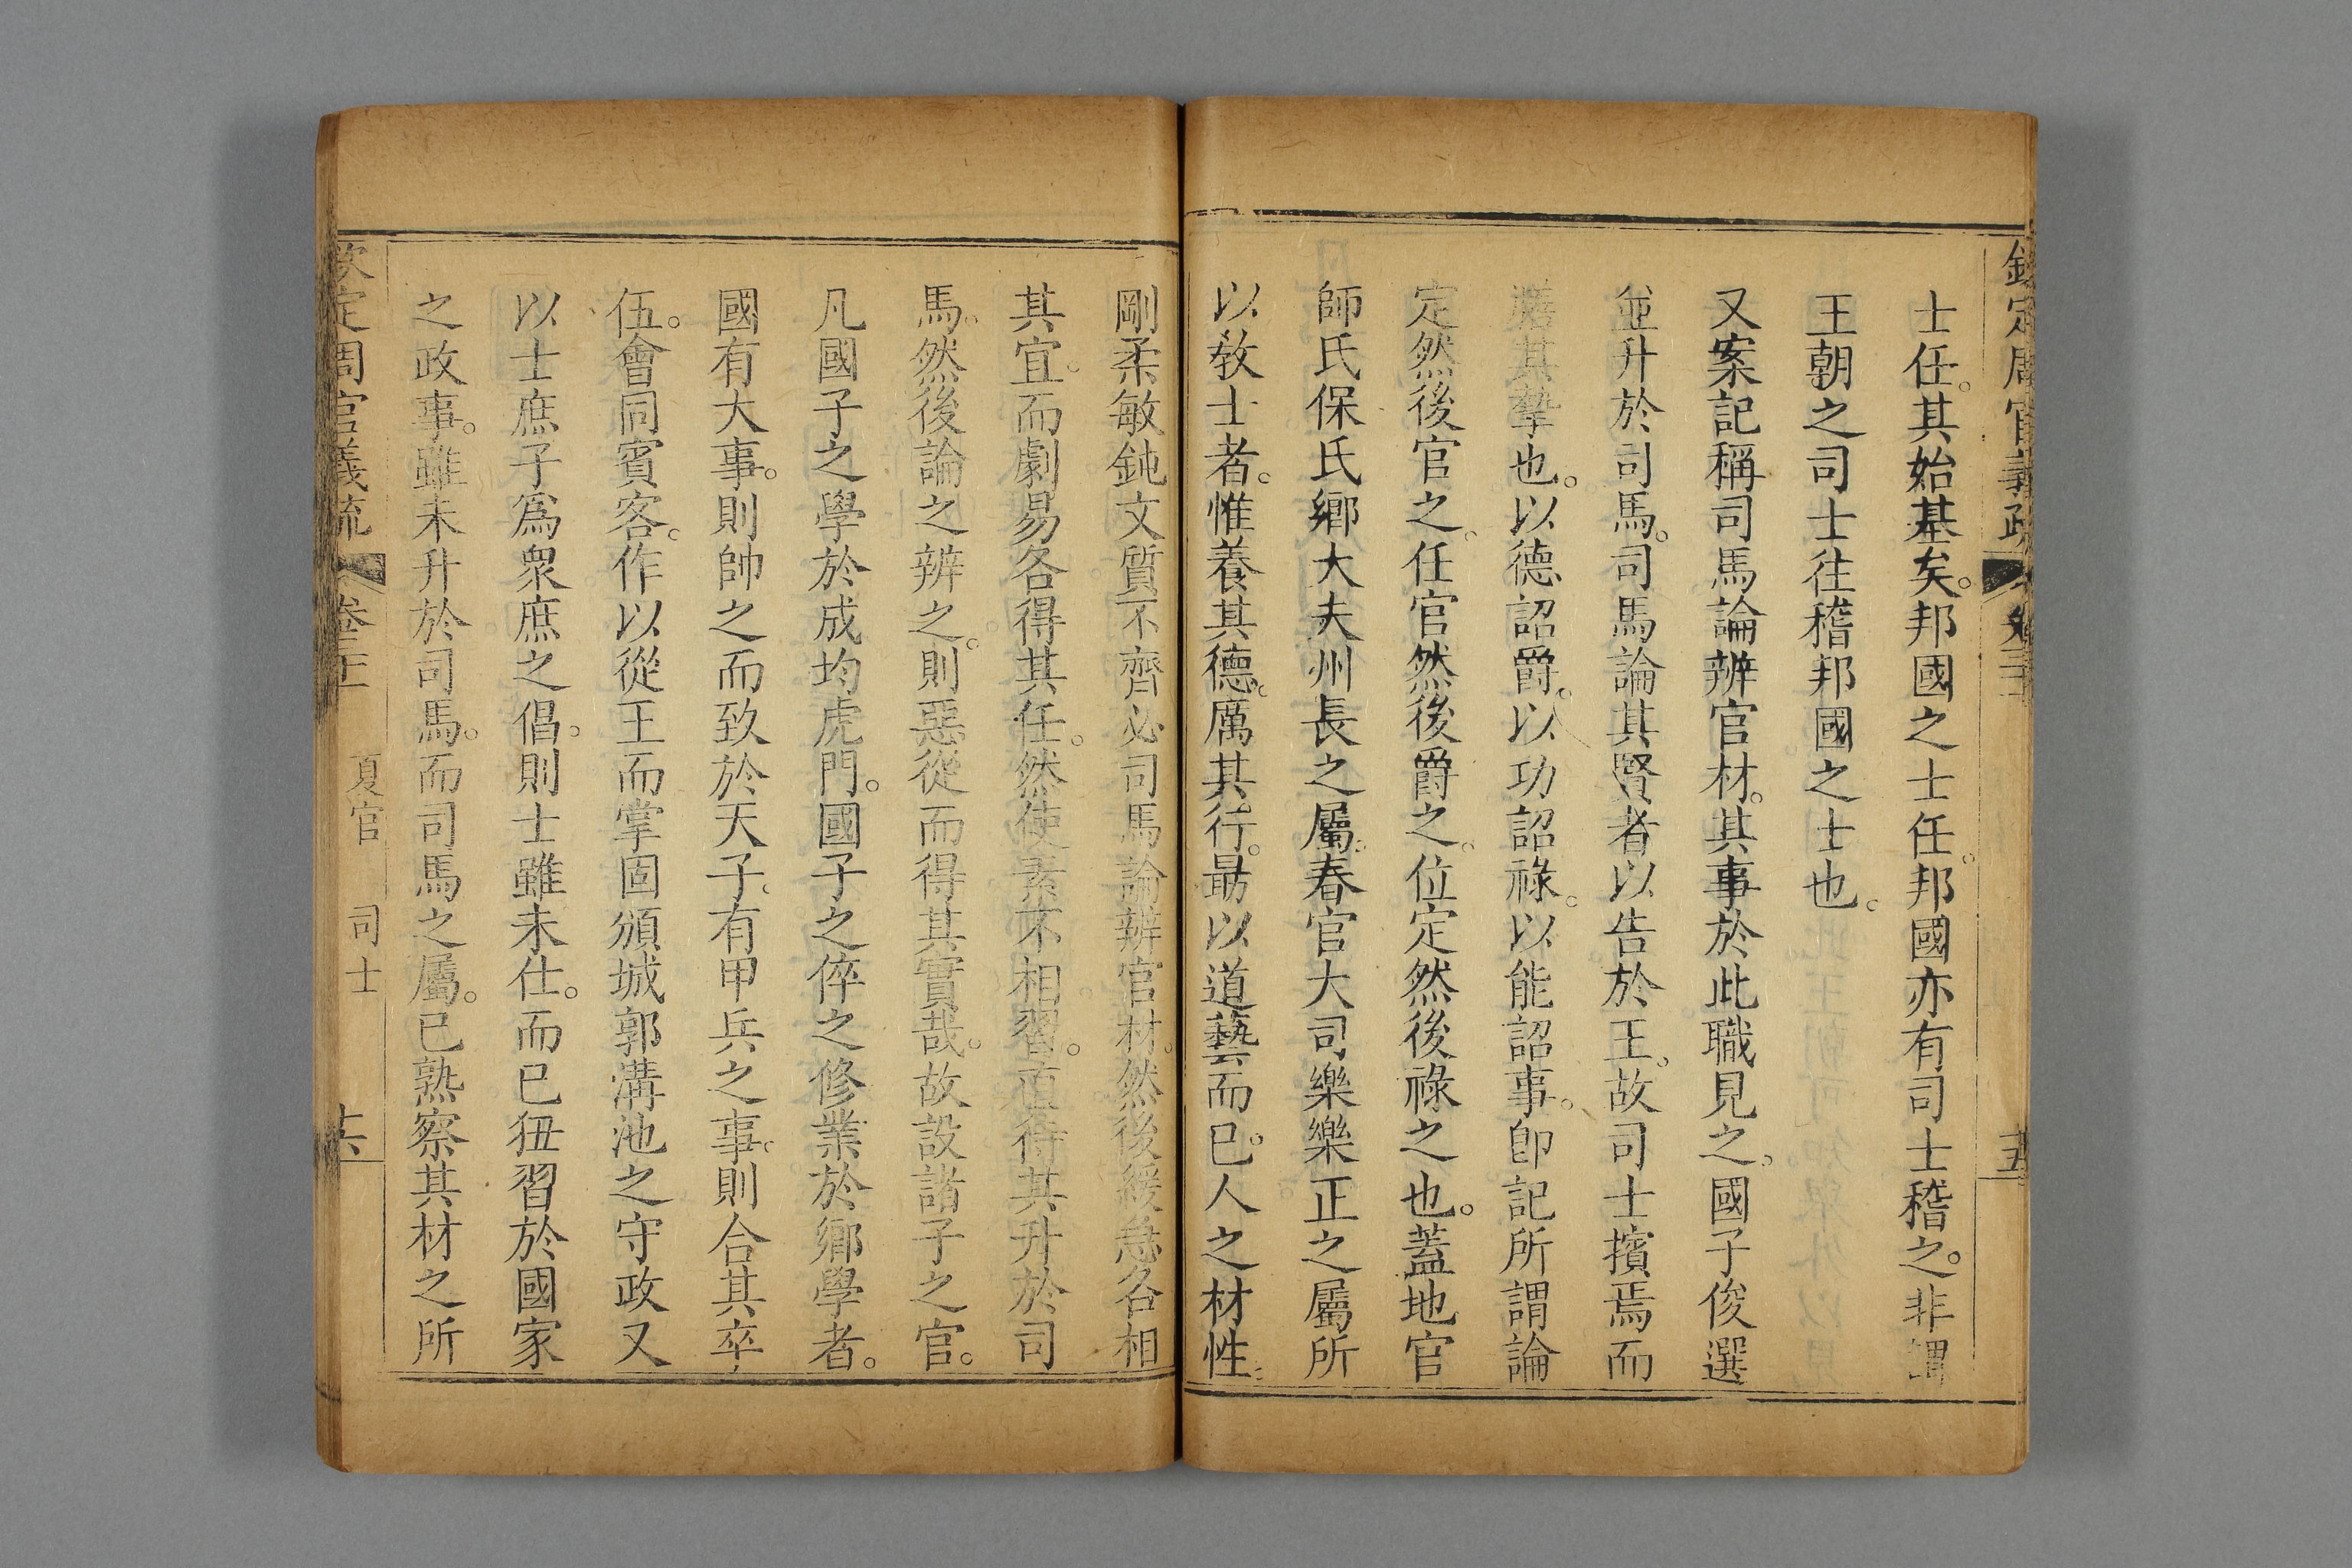 欽定周官義疏 卷三十 十五
士任。其始基矣。邦國之士任。邦國亦有司士稽之。非謂
王朝之司士往稽邦國之士也。
又案記稱司馬論辨官材。其事於此職見之。國子俊選
並升於司馬。司馬論其賢者以告於王。故司士擯焉而
膳其摯也。以德詔爵。以功詔祿。以能詔事。卽記所謂論
定然後官之。任官然後爵之。位定然後祿之也。蓋地官
師氏保氏鄉大夫州長之屬。春官大司樂樂正之屬所
以敎士者。惟養其德。厲其行。最以道藝而已。人之材性。
剛柔敏鈍文質不齊必司馬論辨官材。然後緩急各相
其宜。而劇易各得其任。然使素不相習。直待其升於司
馬。然後論之辨之。則惡從而得其實哉。故設諸子之官。
凡國子之學於成均虎門。國子之倅之修業於鄉學者。
國有大事。則帥之而致於天子。有甲兵之事。則合其卒
伍。會同賓客。作以從王而掌固頒城郭溝池之守政又
以士庶子爲眾庶之倡。則士雖未仕。而已狃習於國家
之政事。雖未升於司馬。而司馬之屬。已熟察其材之所
欽定周官義疏 卷三十 夏官 司士 十六